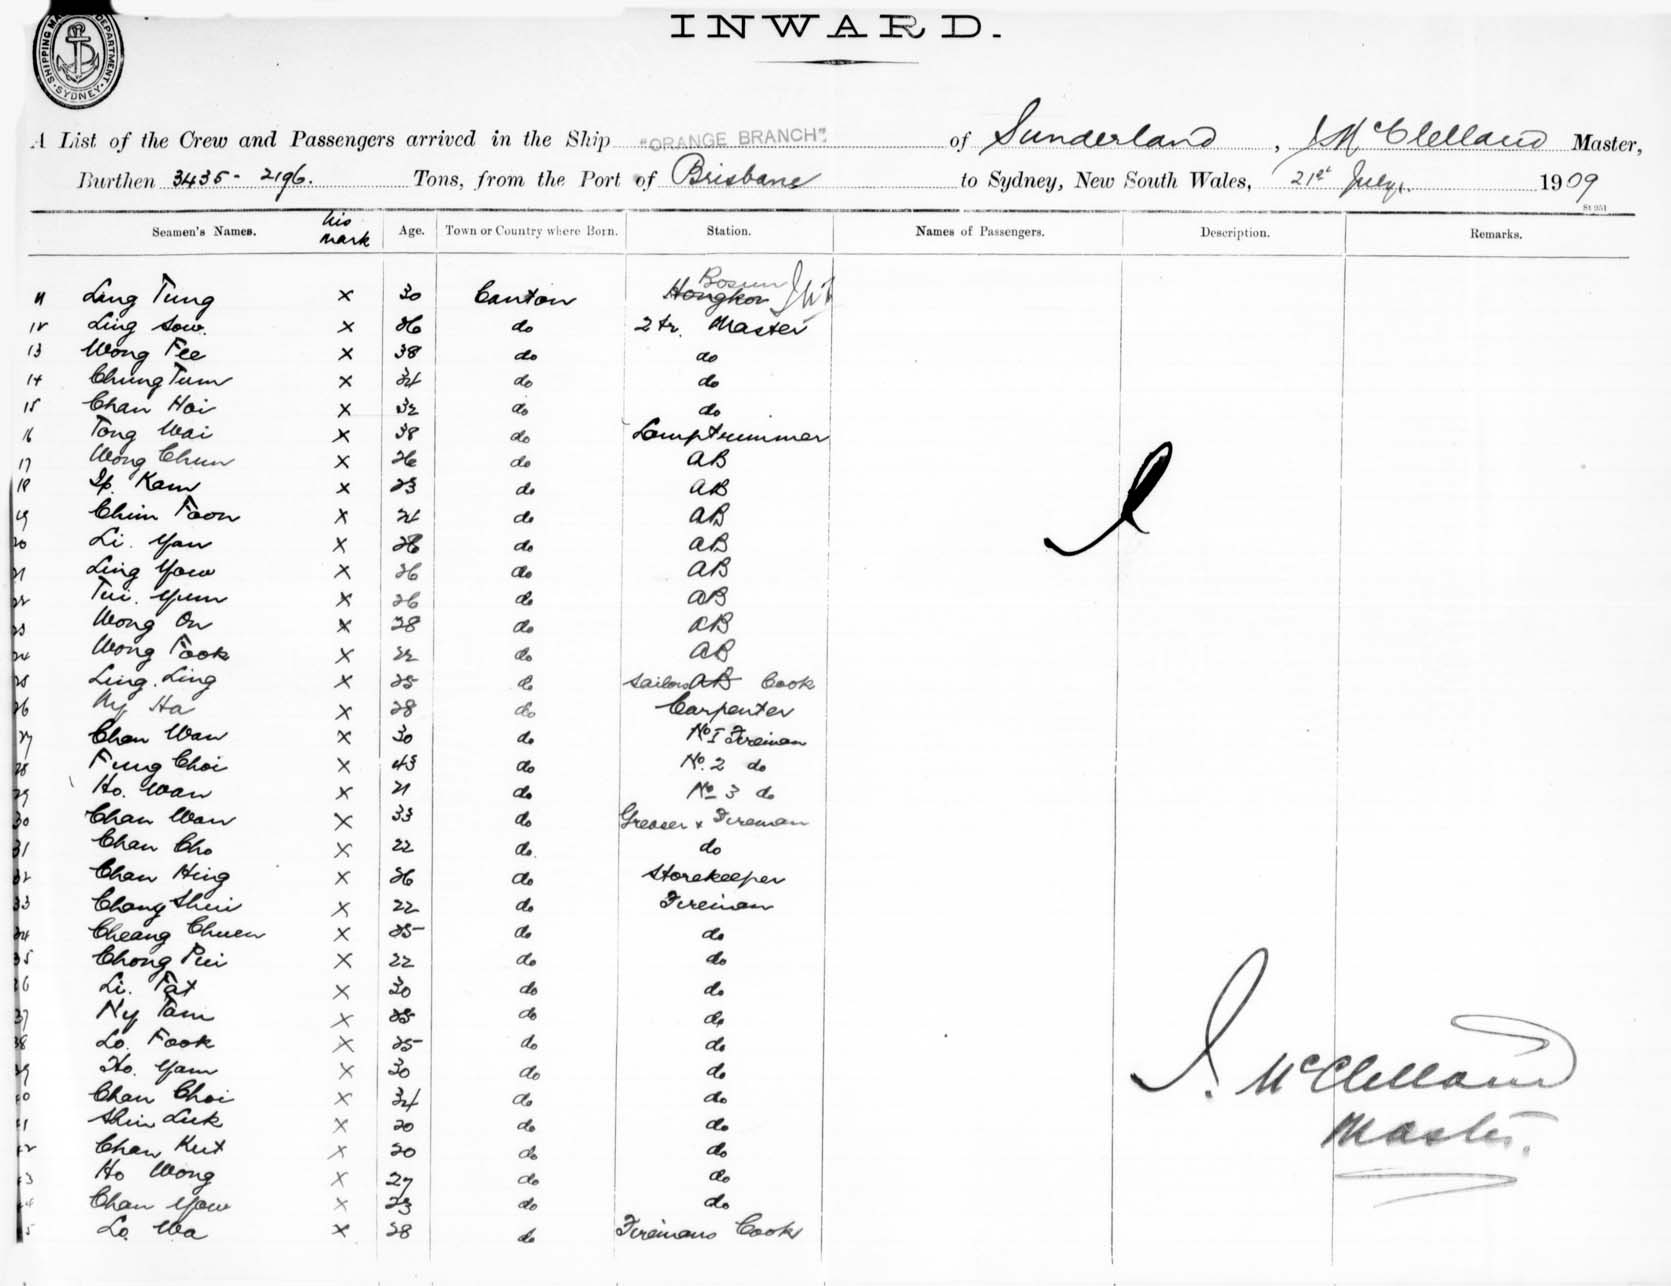 INWARD.
SHIPPING MA DEPARTMENT. SYDNEY.
A List of the Crew and Passengers arrived in the Ship "ORANGE BRANCH". of Sunderland, J McClelland Master,
Burthen 3435 - 2196. Tons, from the Port of Brisbane to Sydney, New South Wales, 21st July, 1909
St 951
Seamen's Names. his mark Age. Town or Country where Born. Station. Names of Passengers. Description. Remarks.
11 Ling Tung × 30 Canton Bosun
12 Ling Sow. × 26 do 2tr. Master
13 Wong Fee × 38 do do
14 Chung Tum × 34 do do
15 Chan Hoi × 32 do do
16 Tong Wai × 38 do Lamptrimmer
17 Wong Chun × 26 do AB
18 Ip. Kam × 23 do AB
19 Chim Foon × 24 do AB
20 Li. Yan × 26 do AB
21 Ling Yow × 26 do AB
22 Tui. Yum × 26 do AB
23 Wong On × 28 do AB
24 Wong Fook × 22 do AB
25 Ling. Ling × 25 do Sailors AB Cook
26 Ny Ha × 28 do Carpenter
27 Chan Wan × 30 do No 1 Fireman
28 Fung Choi × 43 do No. 2 do
29 Ho. Wan × 21 do No 3 do
30 Chan Wan × 33 do Greaser & Fireman
31 Chan Cho × 22 do. do
32 Chan Hing × 26 do Storekeeper
33 Chong Shui × 22 do Fireman
34 Cheang Chuen × 25 do do
35 Chong Pui × 22 do do
36 Li. Fat × 30 do do
37 Ny Tam × 25 do do
38 Lo. Fook × 25 do do
39 Ho. Yam × 30 do do
40 Chan Choi × 34 do do
41 Shin Luk × 20 do do
42 Chan Kut × 20 do do
43 Ho Wong × 27 do do
44 Chan Yow × 23 do do
45 Lo. Wa × 28 do Firemans Cook
J. McClelland
Master.